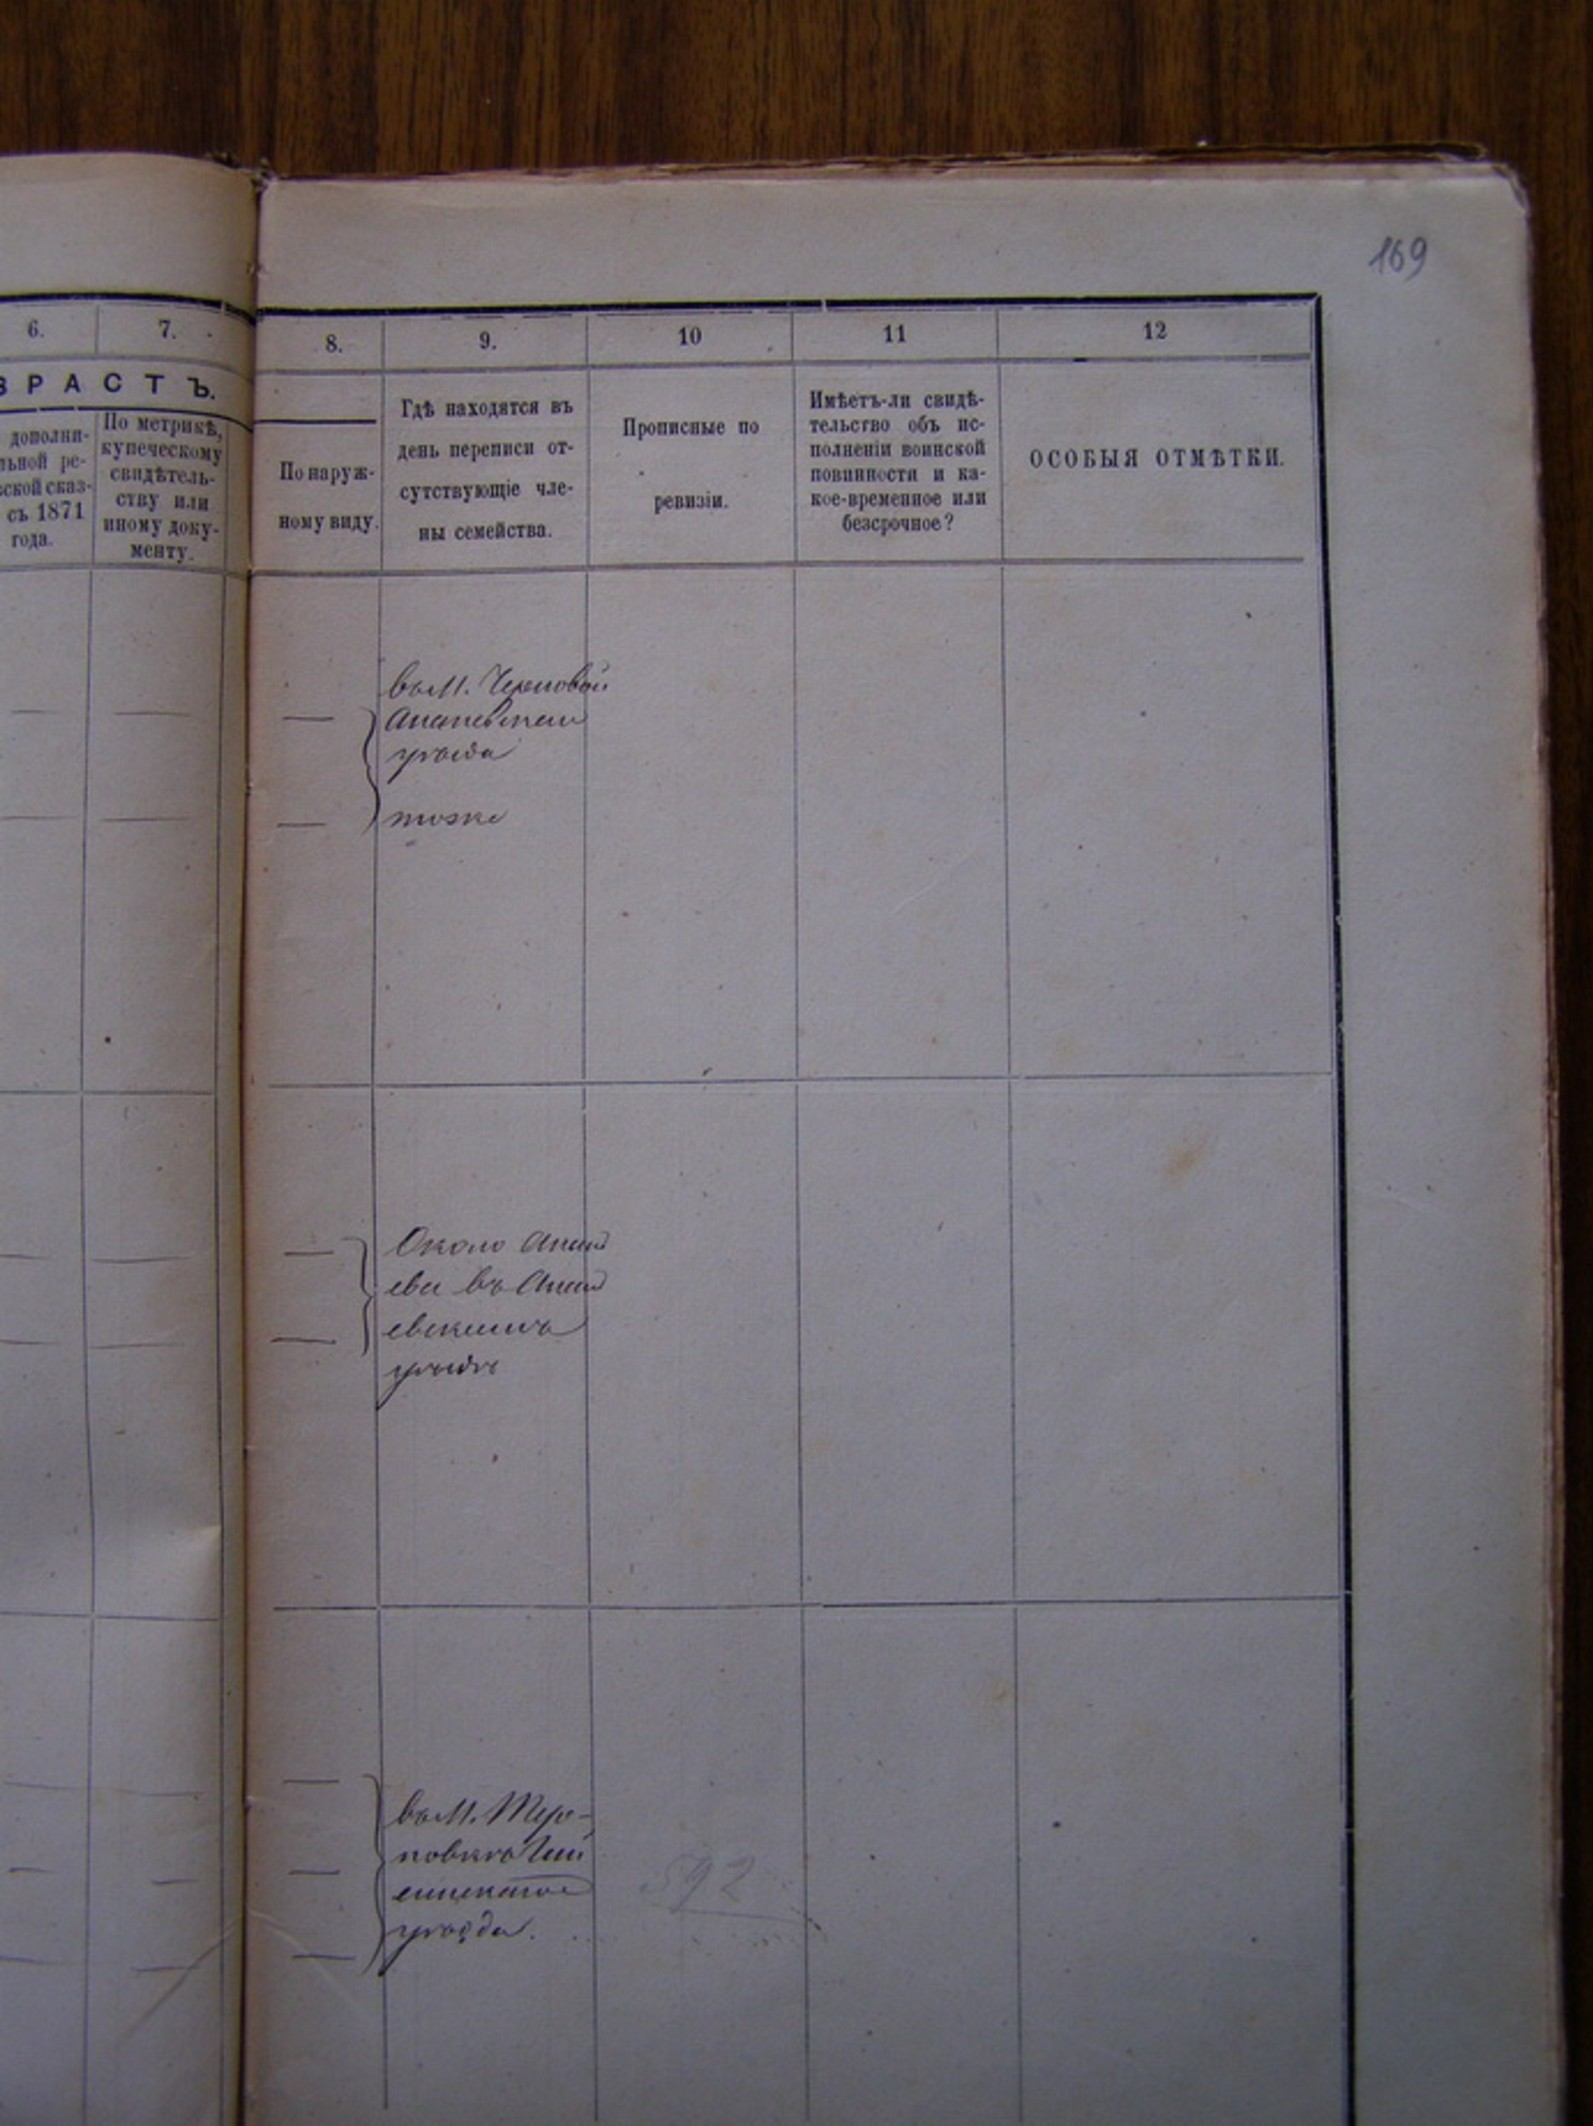 169
6.
7.
8.
9.
10
11
12
ЗРАСТЪ.
дополни-
льной ре-
ской сказ-
съ 1871
года.
По метрикѣ,
купеческому
свидѣтель-
ству или
иному доку-
менту.
По наруж-
ному виду.
Гдѣ находятся въ
день переписи от-
сутствующіе чле-
ны семейства.
Прописные по
ревизіи.
Имѣетъ-ли свидѣ-
тельство объ ис-
полненіи воинской
повинности и ка-
кое-временное или
безсрочное?
ОСОБЫЯ ОТМѢТКИ.
въ М.
уѣзда
тоже
Около Анань
ева въ Анань
евскомъ
уѣздѣ
въ М. Тер-
новкѣ
уѣзда.
592